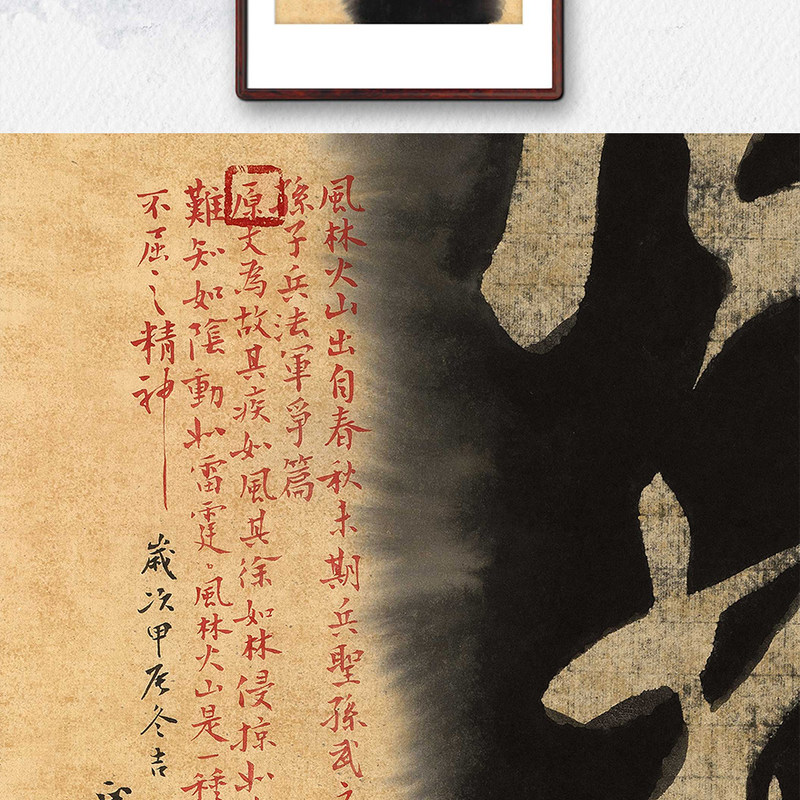 風林火山出自春秋末期兵聖孫武之
孫子兵法軍爭篇
原文為故其疾如風其徐如林侵掠如
難知如陰動如雷霆。風林火山是一種
不屈之精神
歲次甲辰冬吉